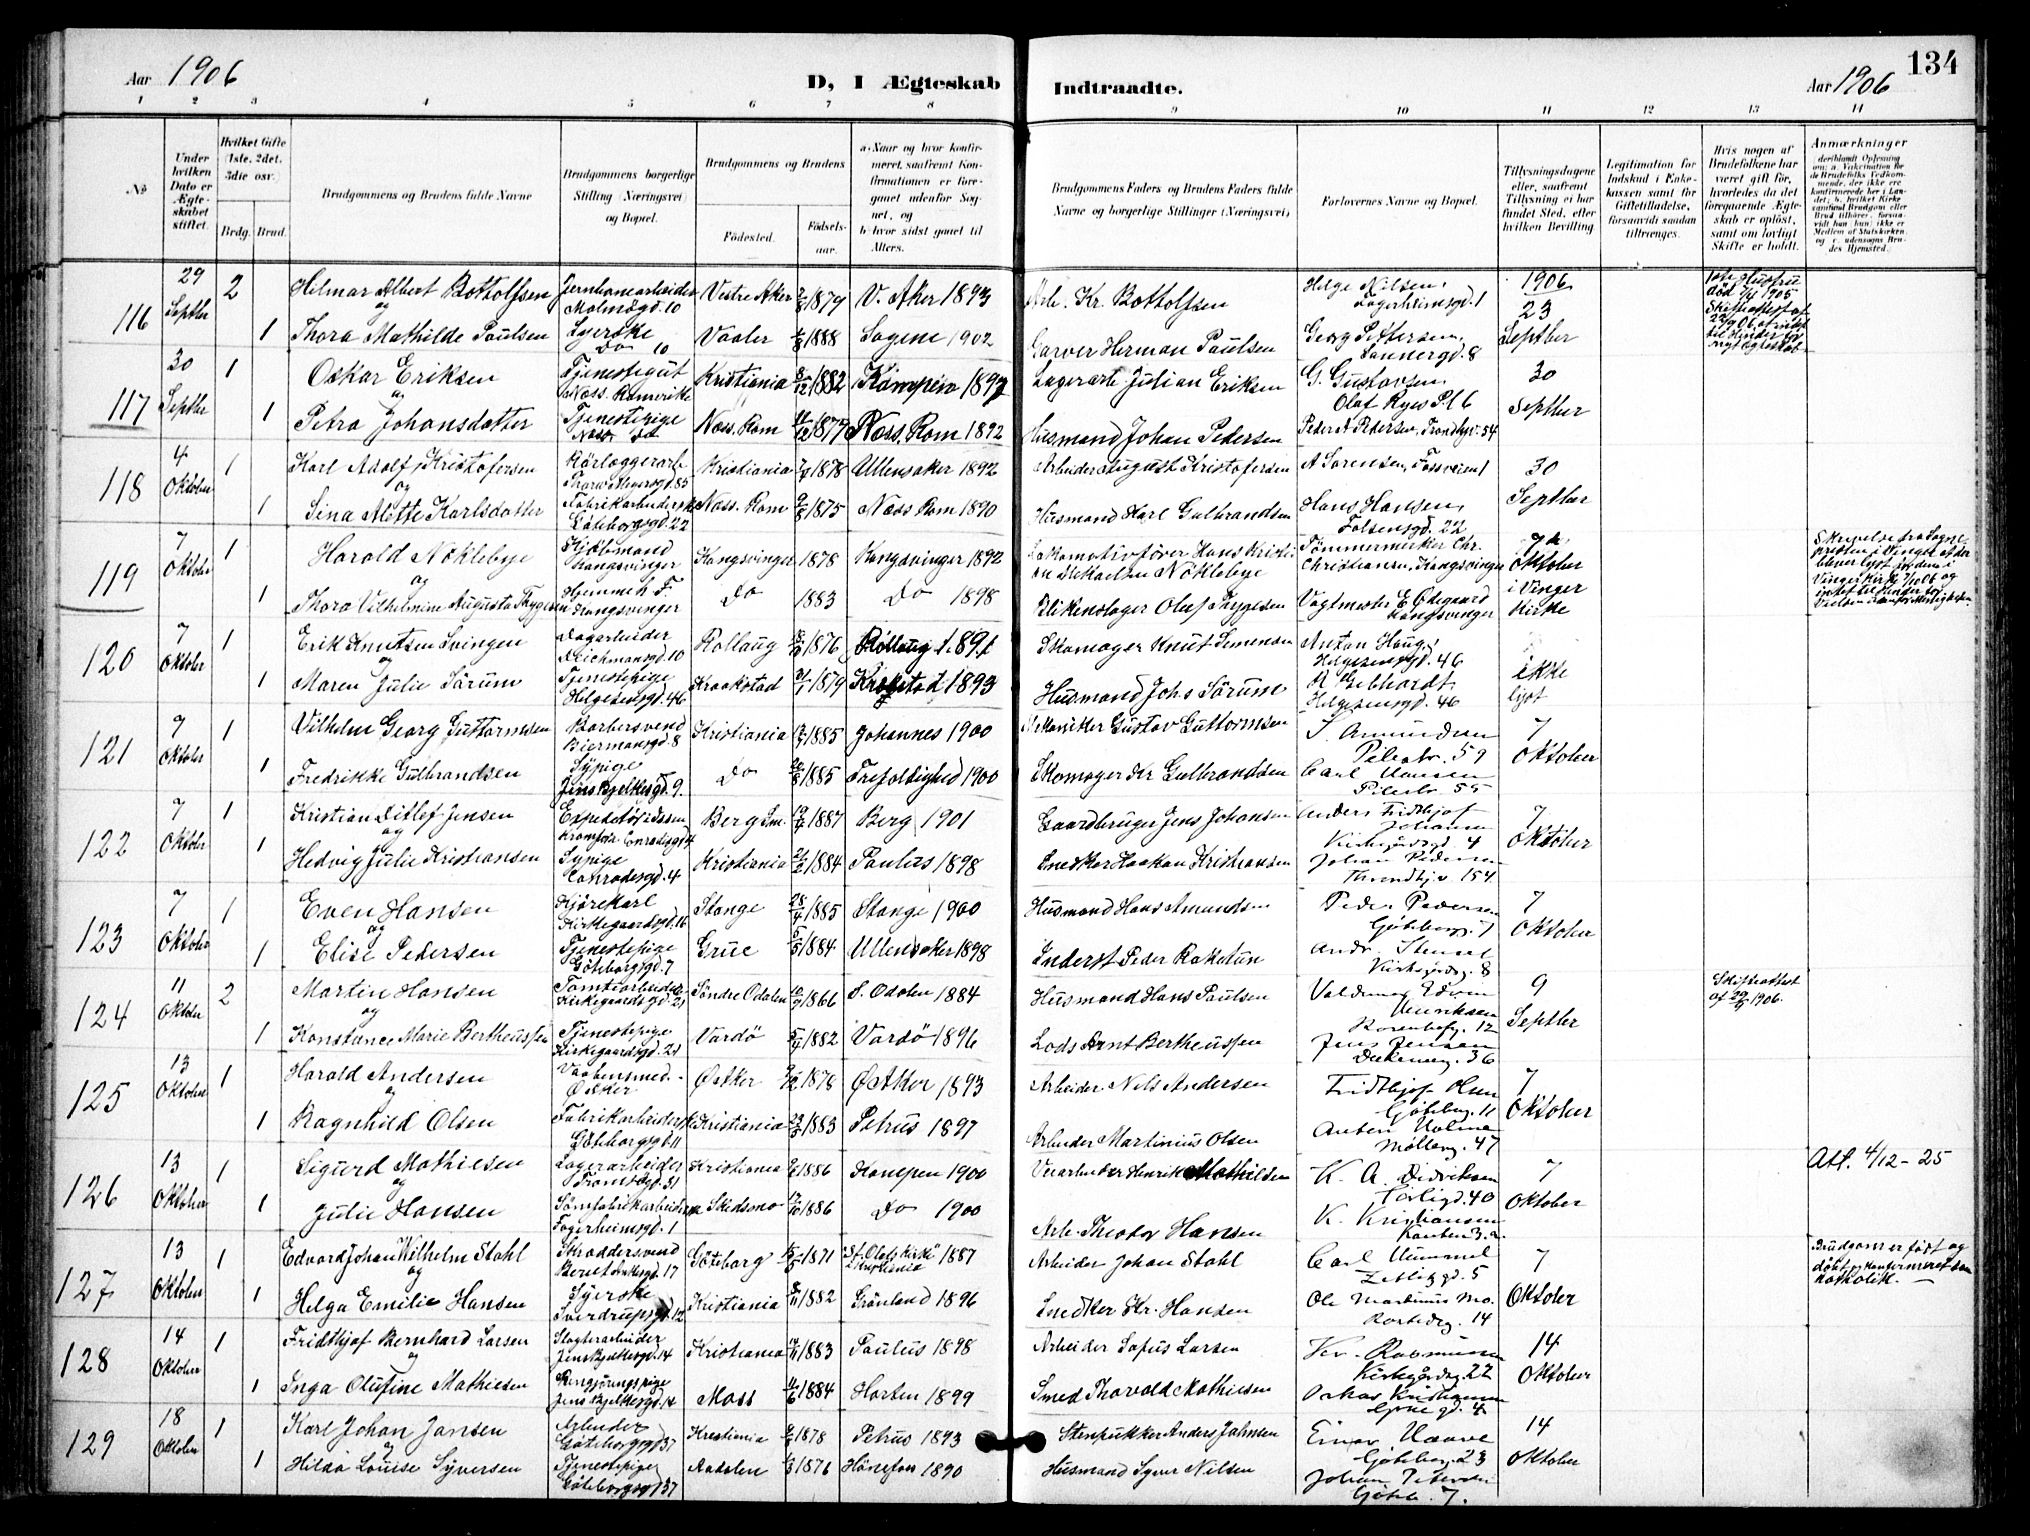 134
Aar 1906
D, I Ægteskab Indtraadte.
Aar 1906
1 2 3 4 5 6 7 8 9 10 11 12 13 14
No
Under hvilken Dato er Ægteskabet stiftet.
Hvilket Gifte (1ste, 2det, 3die osv.
Brdg. Brud.
Brudgommens og Brudens fulde Navne
Brudgommens borgerlige Stilling (Næringsvei) og Bopæl.
Brudgommens og Brudens
Fødested.
Fødselsaar.
a. Naar og hvor konfirmeret, saafremt Konfirmationen er foregaaet udenfor Sognet, og
b. hvor sidst gaaet til Alters.
Brudgommens Faders og Brudens Faders fulde Navne og borgerlige Stillinger (Næringsvei)
Forlovernes Navne og Bopæl.
Tillysningsdagene eller, saafremt Tillysning ei har fundet Sted, efter hvilken Bevilling
Legitimation for Indskud i Enkekassen samt for Giftetilladelse, forsaavidt saadan tiltrænges.
Hvis nogen af Brudefolkene har været gift før, hvorledes da det foregaaende Ægteskab er opløst, samt om lovligt Skifte er holdt.
Anmærkninger
116 29 Septbr 2 Hilmar Albert Botholfsen Jernbanearbeider Malmøgd. 10 Vestre Aker 1879 V. Aker 1893 Arb. Kr. Botholfsen Helge Nilsen, Fagerheimsgd. 1 1906 23 Septber
og
1 Thora Mathilde Paulsen Syerske Do 10 Vaaler 1888 Sagene 1902 Garver Herman Paulsen Georg Pettersen, Sannergd. 8
117 30 Septbr 1 Oskar Eriksen Tjenestegut Næs. Romerike Kristiania 8/12 1882 Kampen 1897 Lagerarb Julian Eriksen G. Gustavsen, Olaf Ryes Pl 6 30 Septber
og
1 Petra Johansdatter Tjenestepige Næs do Næs. Rom 1879 Næs. Rom 1892 Husmand Johan Pedersen Peder A Pedersen, Trondhjv. 54
118 4 Oktober 1 Karl Adolf Kristofersen Rørlæggerarb Thorv. Meyersgd. 85 Kristiania 1878 Ullensaker 1892 Arbeider August Kristofersen A Sørensen, Fossveien 1 30 Septber
og
1 Sina Mette Karlsdatter Fabrikarbeiderske Göteborgsgd. 22 Næss. Rom 1875 Næss Rom 1890 Husmand Karl Gulbrandsen Hans Hansen, Falsensgd. 22
119 7 Oktober 1 Harald Nøklebye Kjøbmand Kongsvinger Kongsvinger 1878 Kongsvinger 1892 Lokomotivfører Hans Kristian Mikaelsen Nøklebye Tømmermerker Chr. Christiansen, Kongsvinger 7de Oktober i Vinger Kirke
og
1 Thora Vilhelmine Augusta Thygesen Hjemme h. F. Kongsvinger Do 1883 Do 1898 Blikenslager Olaf Thygesen Vagtmester E Ødegaard Kongsvinger
120 7 Oktober 1 Erik Knutsen Svingen Dagarbeider Deichmansgd. 10 Rollaug 1876 Rollaug 1891 Skomager Knut Simensen Anton Haug, Helgesensgd. 46 ikke lyst
og
1 Maren Julie Sørum Tjenestepige Helgesensgd. 46 Kraakstad 1879 Krokstad 1893 Husmand Johs Sørum R Gebhardt Helgesensgd. 46
121 7 Oktober 1 Vilhelm Georg Guttormsen Barbersvend Biermansgd. 8 Kristiania 1885 Johannes 1900 Mekaniker Gustav Guttormsen J. Amundsen Pilestr. 59 7 Oktober
og
1 Fredrikke Gulbrandsen Sypige Jens Bjelkesgd. 9. Do 1885 Trefoldighed 1900 Skomager Kr Gulbrandsen Carl Hansen Pilestr 55
122 7 Oktober 1 Kristian Ditlef Jensen Conradisgd 4 Berg Sm. 1887 Berg 1901 Gaardbruger Jens Johansen Anders Fridthjof Johansen Kirkegårdsgd. 4 7 Oktober
og
1 Hedvig Julie Kristiansen Sypige Conradisgd. 4 Kristiania 1884 Paulus 1898 Snedker Haakon Kristiansen Johan Pedersen Throndhjv. 154
123 7 Oktober 1 Even Hansen Kjørekarl Kirkegaardsgd. 16 Stange 28/4 1885 Stange 1900 Husmand Hans Amundsen Peder Pedersen Göteborgs. 7 7 Oktober
og
1 Elise Pedersen Tjenestepige Göteborgsgd. 7 Grue 1884 Ullensaker 1898 Inderst Peder Rakstun Andr. Stensel Kirkegårdsg. 8
124 11 Oktober 2 Martin Hansen Tomtearbeider Kirkegaardsgd. 21 Søndre Odalen 1866 S. Odalen 1884 Husmand Hans Paulsen Valdemar Edvin Henriksen Rosenhofg. 12 9 Septber Skifteattest af 1906.
og
1 Konstance Marie Bertheussen Tjenestepige Kirkegaardsgd. 21 Vardø 1882 Vardø 1896 Lods Arnt Bertheussen Jens Jensen 36
125 13 Oktober 1 Harald Andersen Ø Aker Ø. Aker 1878 Ø. Aker 1893 Arbeider Nils Andersen Fridthjof Olsen Göteborg. 11 7 Oktober
og
1 Ragnhild Olsen Fabrikarbeiderske Göteborgsgd. 11 Kristiania 1883 Petrus 1897 Arbeider Martinius Olsen Holme Møllerg. 47
126 13 Oktober 1 Sigurd Mathiesen Lagerarbeider Tromsøgd. 31 Kristiania 1886 Kampen 1900 Veiarbeider Henrik Mathiesen K. A. Didriksen 40 7 Oktober Att. 4/12-25
og
1 Julie Hansen Sømfabrikarbeiderske Fagerheimsgd. 1 Skedsmo 1886 Do 1900 Arb. Theodor Hansen K. Kristiansen
127 13 Oktober 1 Edvard Johan Wilhelm Stahl Skræddersvend Bernt Ankersgd. 17 Göteborg 1871 "St. Olafs Kirke" i Kristiania 1887 Arbeider Johan Stahl Carl Hummel Zetlitzgd. 5 7 Oktober Brudgom er født og døbt og konfirmeret som Katholik.
og
1 Helga Emilie Hansen Syerske Sverdrupsgd. 12 Kristiania 1882 Grønland 1896 Snedker Kr. Hansen Ole Martinius Mo. 14
128 14 Oktober 1 Fridthjof Bernhard Larsen Slagterarbeider Jens Bjelkesgd. 14 Kristiania 1883 Paulus 1898 Arbeider Sofus Larsen Kr. Rasmussen Kirkegårdsg. 22 14 Oktober
og
1 Inga Olufine Mathiesen Rengjøringspige Jens Bjelkesgd. 14 Moss 1884 Horten 1899 Smed Thorvald Mathiesen Oskar Kristiansen 4
129 18 Oktober 1 Karl Johan Jansen Arbeider Göteborggd 37 Kristiania 1878 Petrus 1893 Stenpukker Anders Johnsen Einar Haave Göteborg. 23 14 Oktober
og
1 Hilda Louise Syversen Tjenestepige Göteborgsgd 37 Aadalen 1876 Hønefos 1890 Husmand Syver Nilsen Johan Petersen Göteb. 7.